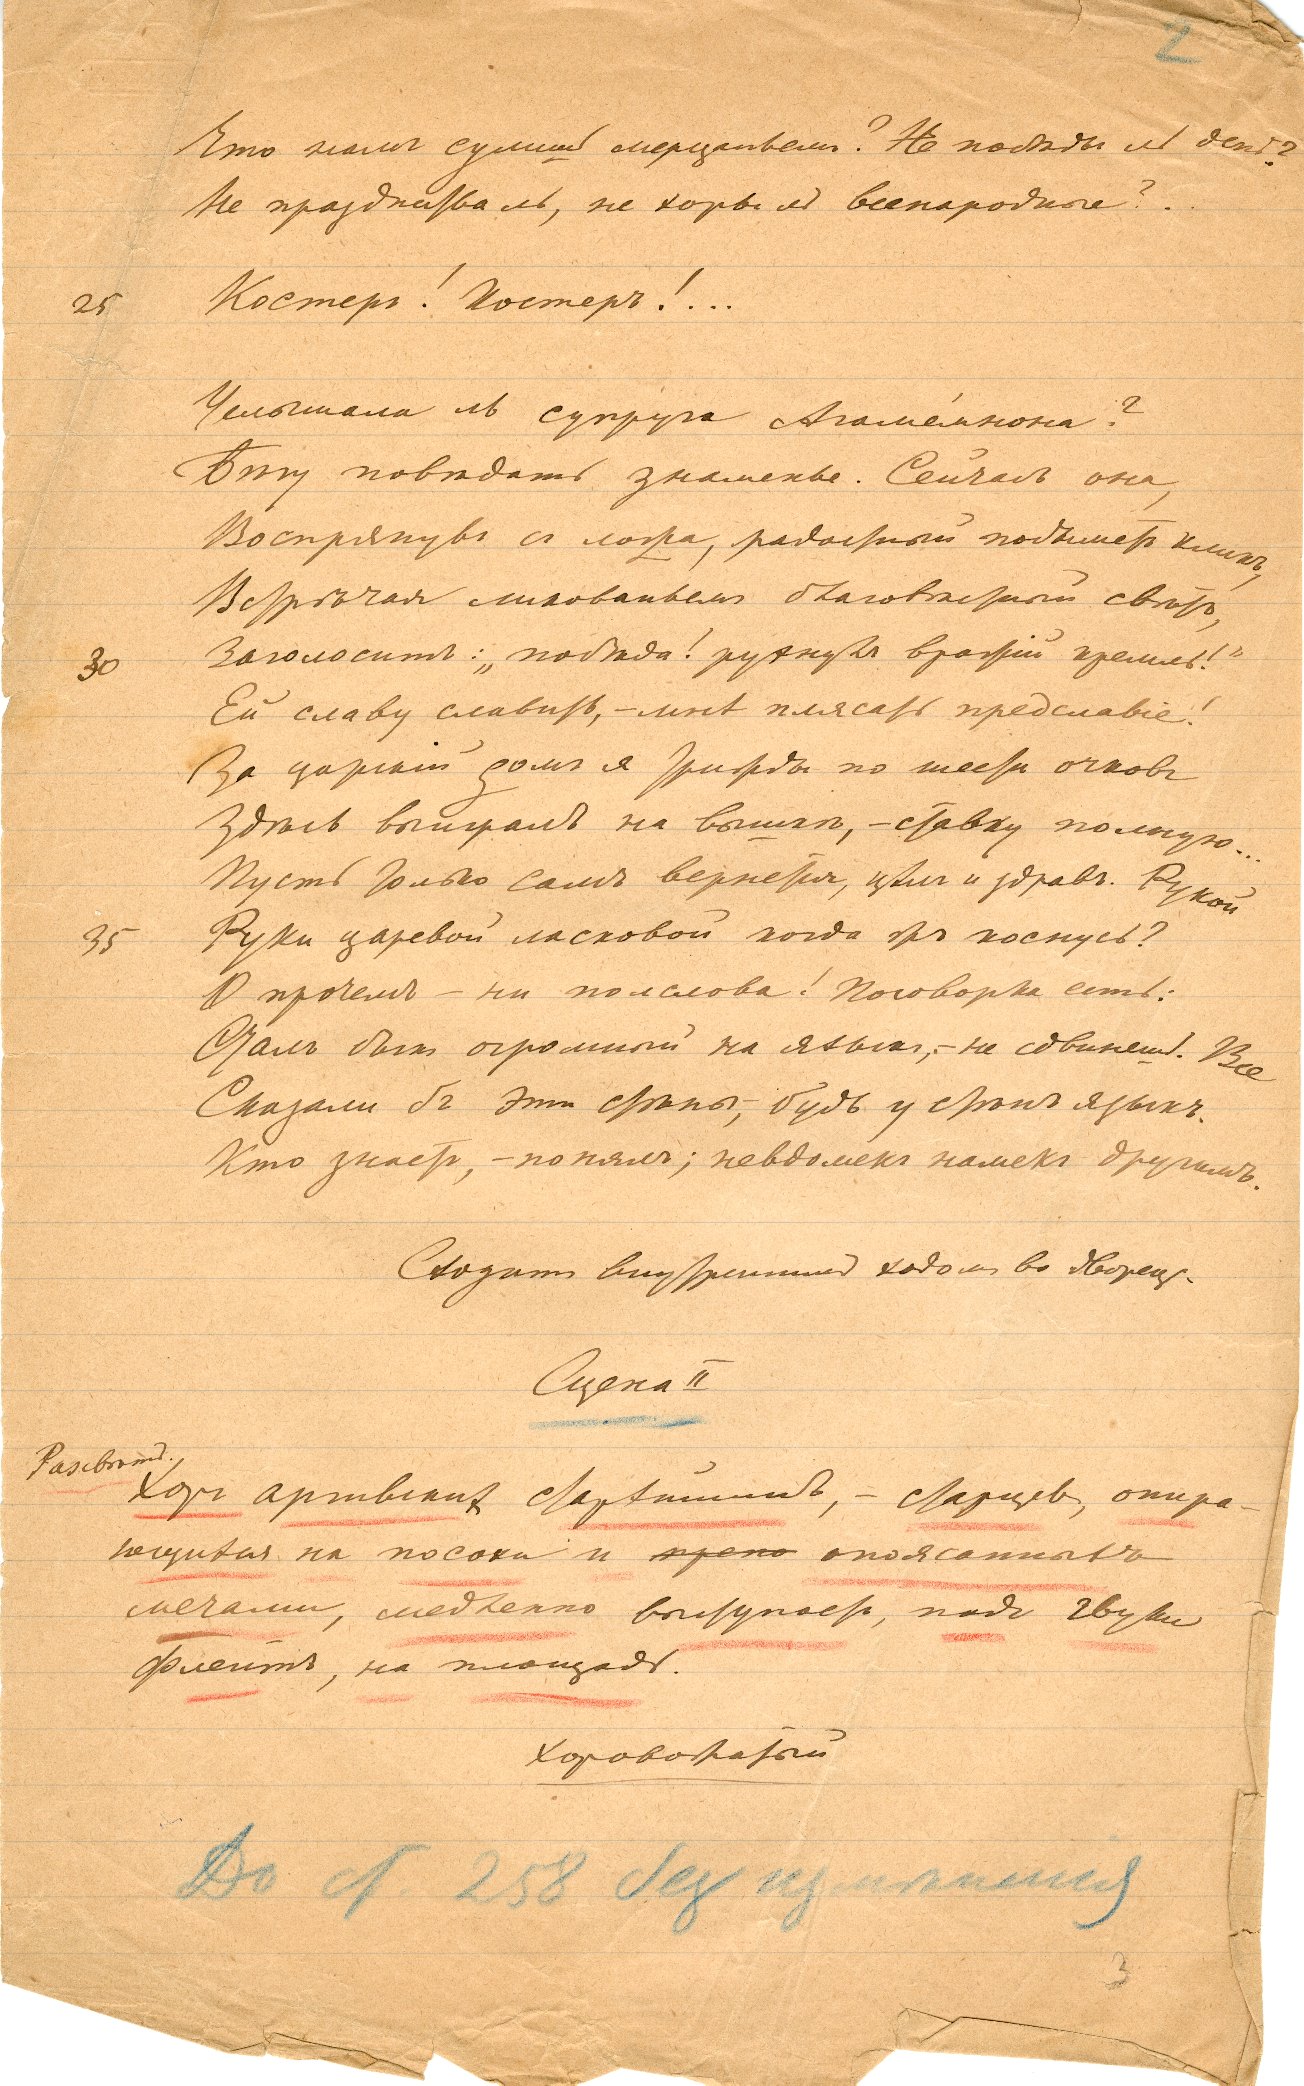 2
Что намъ сулишь мерцаньемъ? Не победы ль день?
Не празднества ль, не хоры ль всенародные?..
25 Костеръ! Костеръ!...
Услышала ль супруга Агаме́мнона?
Бѣгу повѣдать знаменье. Сейчасъ она,
Воспрянувъ съ ложа, радостный подыметъ кликъ,
Встрѣчая ликованьемъ благовѣстный свѣтъ,
30 Заголоситъ: „побѣда! рухнулъ вражій кремль!“
Ей славу славить, – мнѣ плясать предславіе!
За царскій домъ я трижды по шести очковъ
Здѣсь выигралъ на вышкѣ, – ставку полную...
Пусть только самъ вернется, цѣлъ и здравъ. Рукой
35 Руки царевой ласковой когда бъ коснусь?
О прочемъ – ни полслова! Поговорка есть:
Сталъ быкъ огромный на языкъ, – не сдвинешь. Все
Сказали бъ эти стѣны, будь у стѣнъ языкъ.
Кто знаетъ, – понялъ; невдомекъ намекъ другимъ.
Сходитъ внутреннимъ ходомъ во дворецъ.
Сцена II
Разсвѣтъ.
Хоръ аргивскихъ старѣйшинъ, – старцевъ, опира-
ющихся на посохи и препо опоясанныхъ
мечами, медленно выступаетъ, подъ звуки
флейтъ, на площадь.
Хороводатый
До ст. 258 безъ измѣненія
3